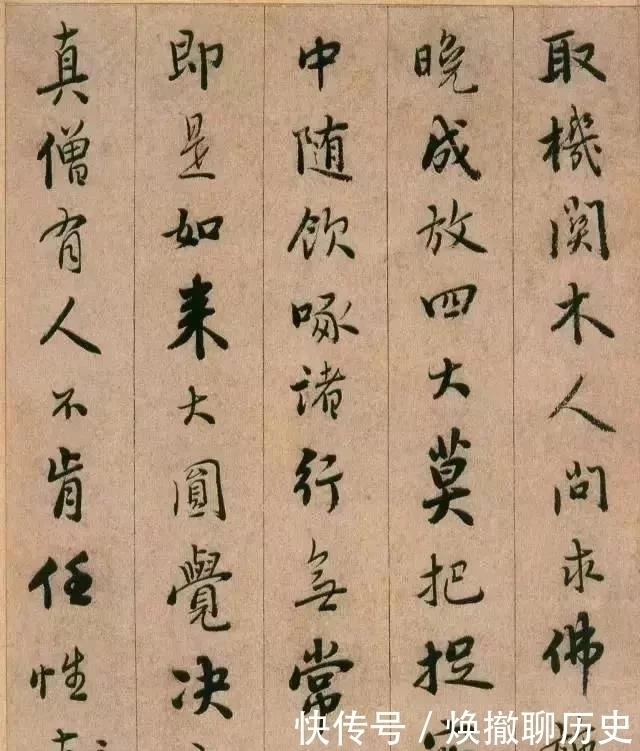 取機関木人問求佛
晚成放四大莫把捉
中随飲啄諸行無常
即是如来大圓覺决
真僧有人不肯任性
快传号/焕撤聊历史